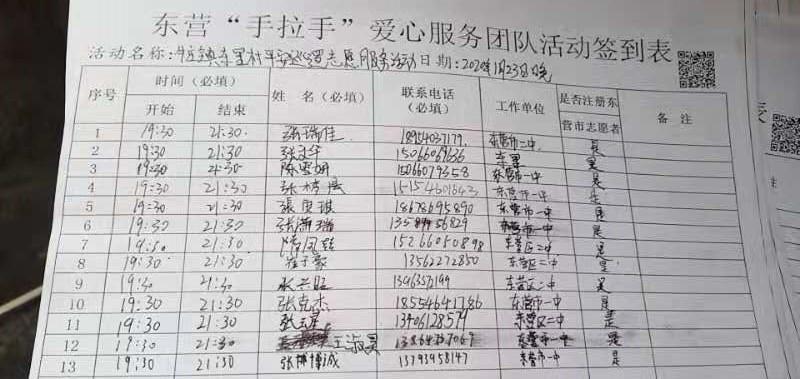 东营“手拉手”爱心服务团队活动签到表
活动名称: 东里村平安巡逻志愿服务活动 日期: 2020年1月23日晚
序号 时间(必填) 姓 名(必填) 联系电话(必填) 工作单位 是否注册东营市志愿者 备 注
开始 结束
1 19:30 21:30 张瑞佳 18954037179 东营市二中 是
2 19:30 21:30 张文华 15066069636 东里 是
3 19:30 21:30 陈雪妍 15066079358 东营市一中 是
4 19:30 21:30 张 15154601643 东营市一中 是
5 19:30 21:30 張奥琪 18678695890 东营市一中 是
6 19:30 21:30 张潇瑞 东营市一中 是
7 19:30 21:30 15266050898 东营区二中 是
8 19:30 21:30 崔子豪 13562272850 东营区二中 是
9 19:30 21:30 张兴旺 东营区二中 是
10 19:30 21:30 张克杰 18554641786 东营市一中 是
11 19:30 21:30 13406128579 东营区二中 是
12 19:30 21:30 王淑昊 东营市一中 是
13 19:30 21:30 张博诚 13793958147 东营市一中 是